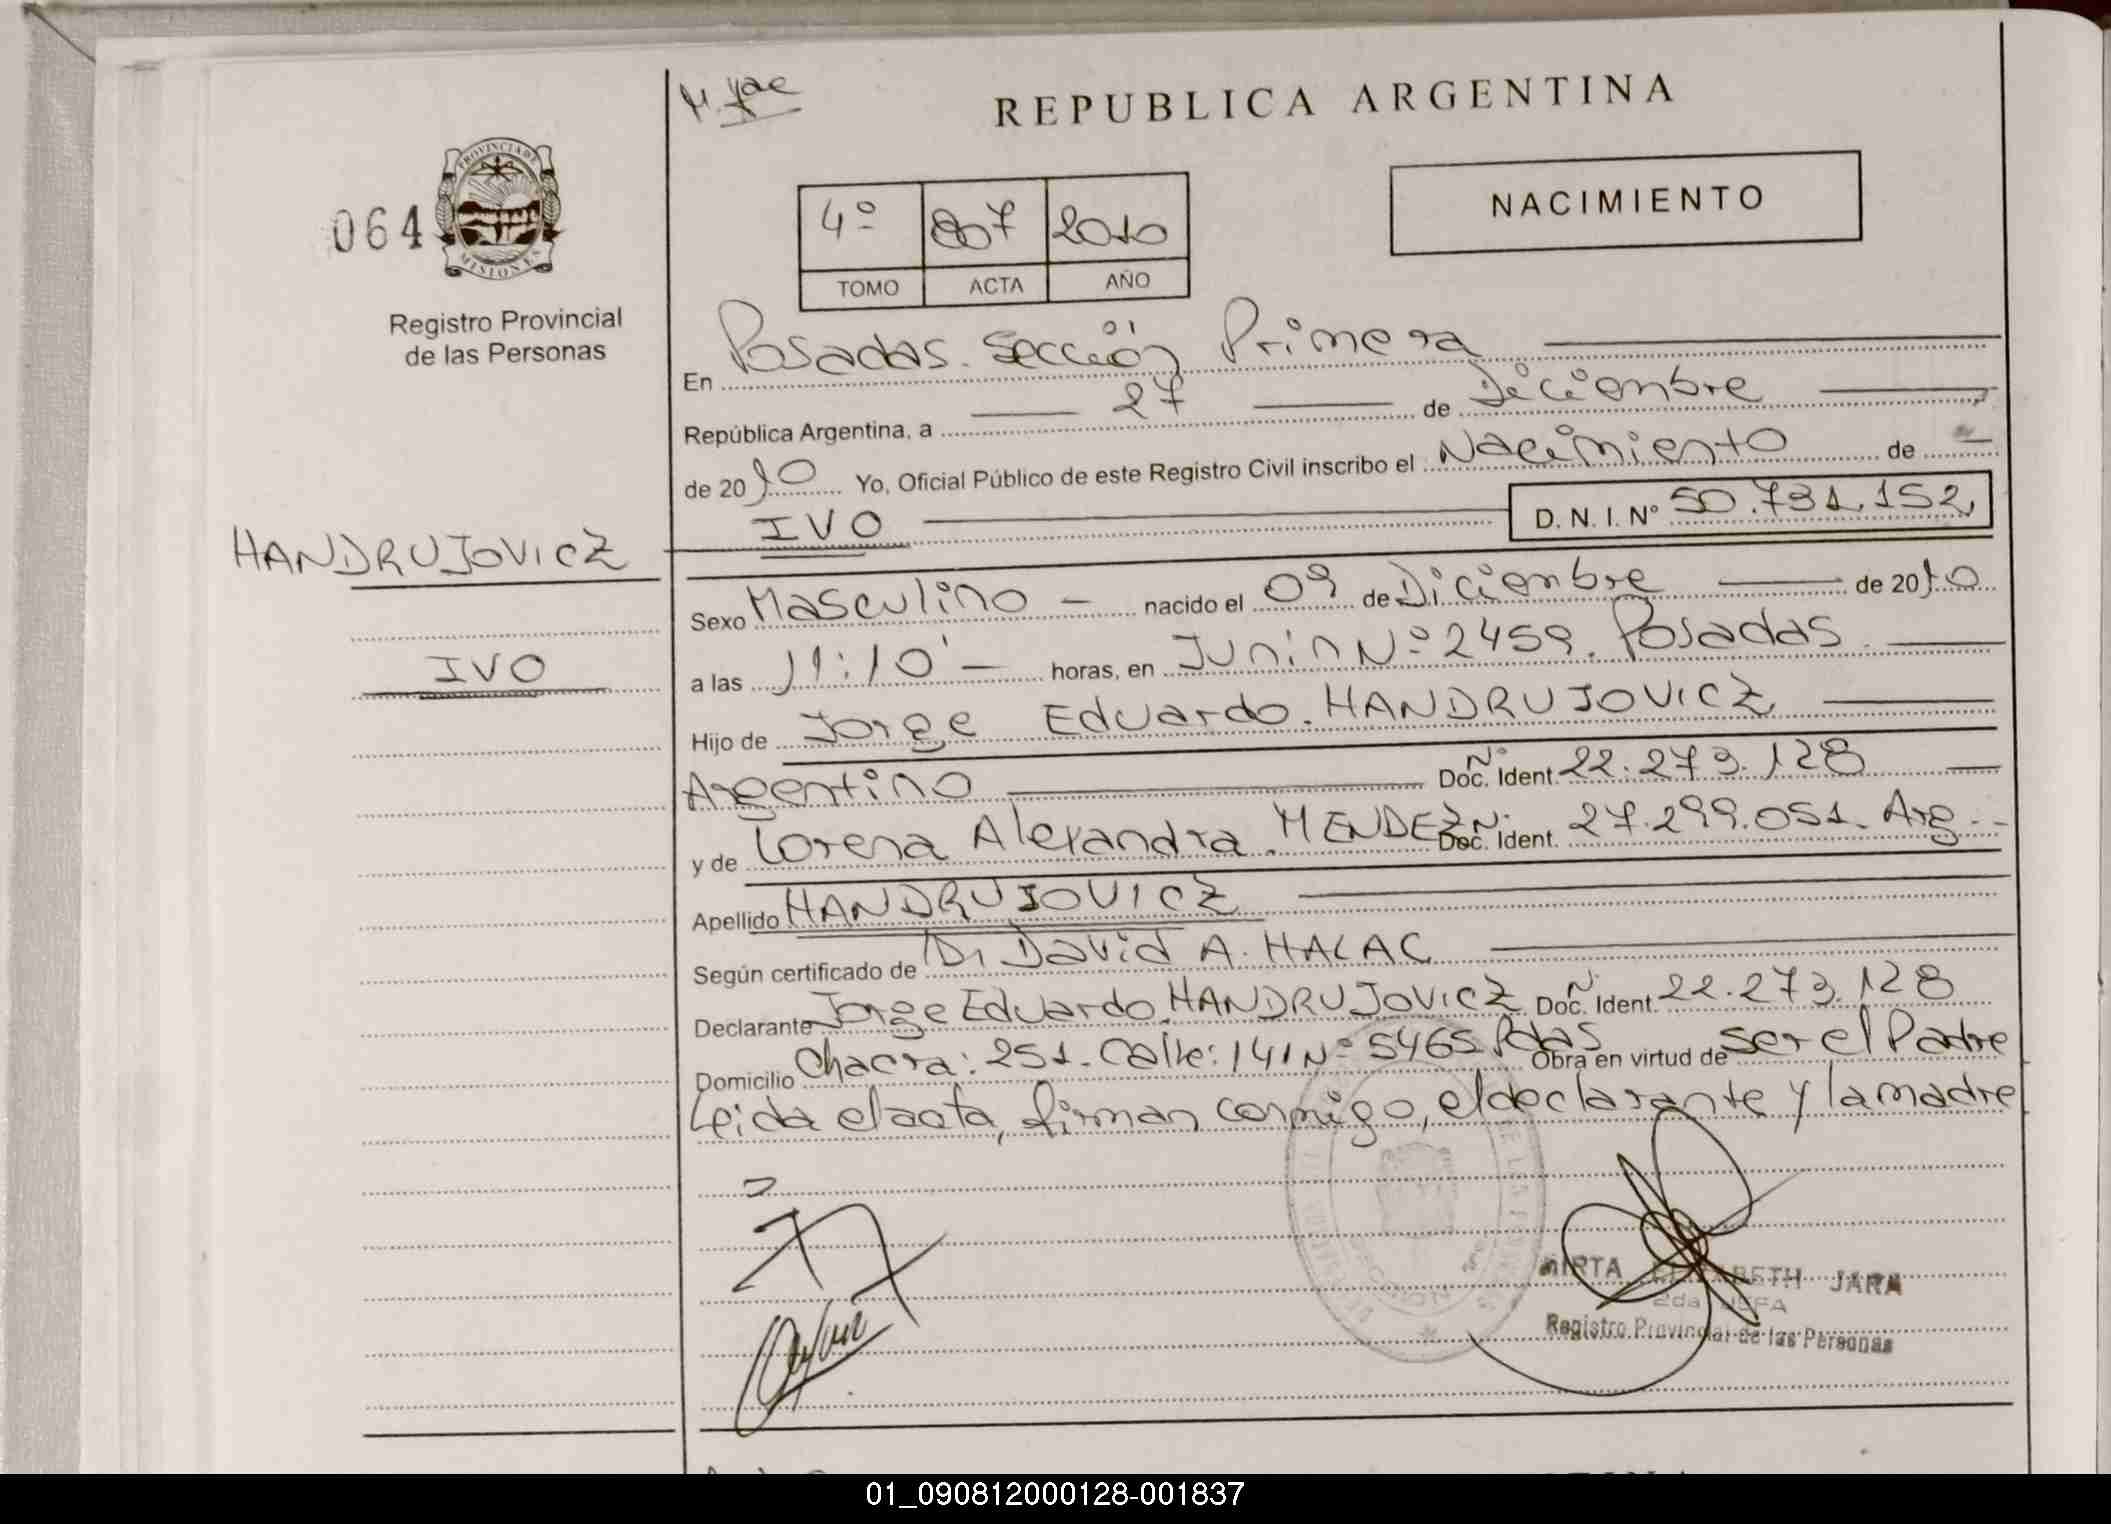 M. Yae
REPUBLICA ARGENTINA
PROVINCIA DE
MISIONES
064
4º 807 2010
TOMO ACTA AÑO
NACIMIENTO
Registro Provincial
de las Personas
En Posadas. Sección Primera
República Argentina, a 27 de Diciembre
de 2010 Yo, Oficial Público de este Registro Civil inscribo el Nacimiento de
IVO D. N. I. Nº 50.731.152
HANDRUJOVICZ
IVO
Sexo Masculino nacido el 09 de Diciembre de 2010
a las 11:10' horas, en Junin Nº 2459. Posadas
Hijo de Jorge Eduardo. HANDRUJOVICZ
Argentino Doc. Ident. Nº 22.273.128
y de Lorena Alexandra. MENDEZ Doc. Ident. Nº 27.299.051. Arg.
Apellido HANDRUJOVICZ
Según certificado de Dr David A. HALAC
Declarante Jorge Eduardo. HANDRUJOVICZ Doc. Ident. Nº 22.273.128
Domicilio Chacra: 251. Calle: 141 Nº 5465 Pdas Obra en virtud de ser el Padre
Leida el acta, firman conmigo, el declarante y la madre
MIRTA ELIZABETH JARA
2da JEFA
Registro Provincial de las Personas
01_090812000128-001837